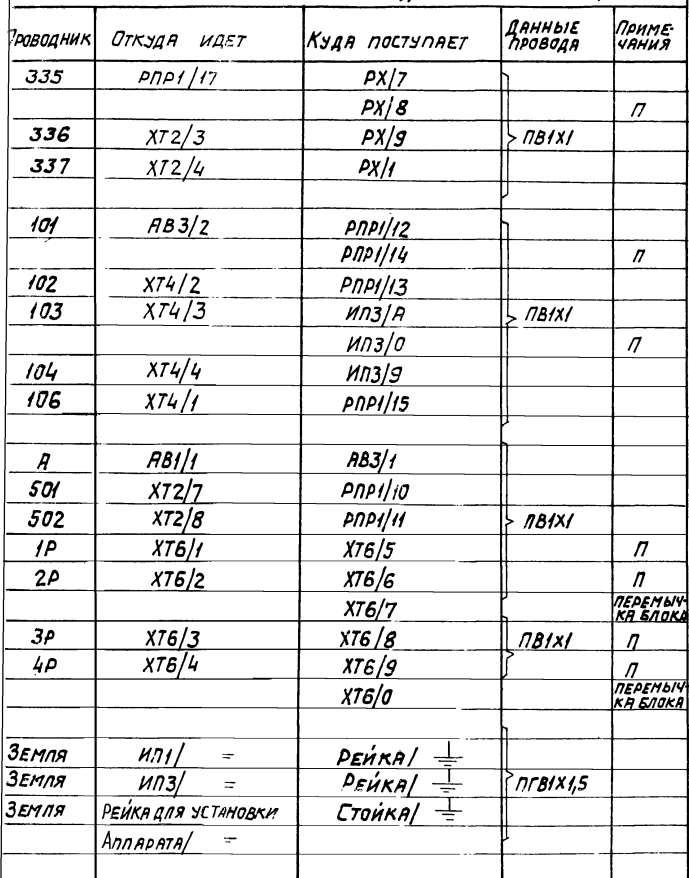 Проводник Откуда идет Куда поступает Данные провода Примечания
335 РПР1/17 РХ/7
РХ/8 П
336 ХТ2/3 РХ/9 ПВ1Х1
337 ХТ2/4 РХ/1
101 АВ3/2 РПР1/12
РПР1/14 П
102 ХТ4/2 РПР1/13
103 ХТ4/3 ИП3/А ПВ1Х1
ИП3/0 П
104 ХТ4/4 ИП3/9
106 ХТ4/1 РПР1/15
А АВ1/1 АВ3/1
501 ХТ2/7 РПР1/10
502 ХТ2/8 РПР1/11 ПВ1Х1
1Р ХТ6/1 ХТ6/5 П
2Р ХТ6/2 ХТ6/6 П
ХТ6/7 Перемычка блока
3Р ХТ6/3 ХТ6/8 ПВ1Х1 П
4Р ХТ6/4 ХТ6/9 П
ХТ6/0 Перемычка блока
Земля ИП1/ Рейка/
Земля ИП3/ Рейка/ ПГВ1Х1,5
Земля Рейка для установки Стойка/
Аппарата/